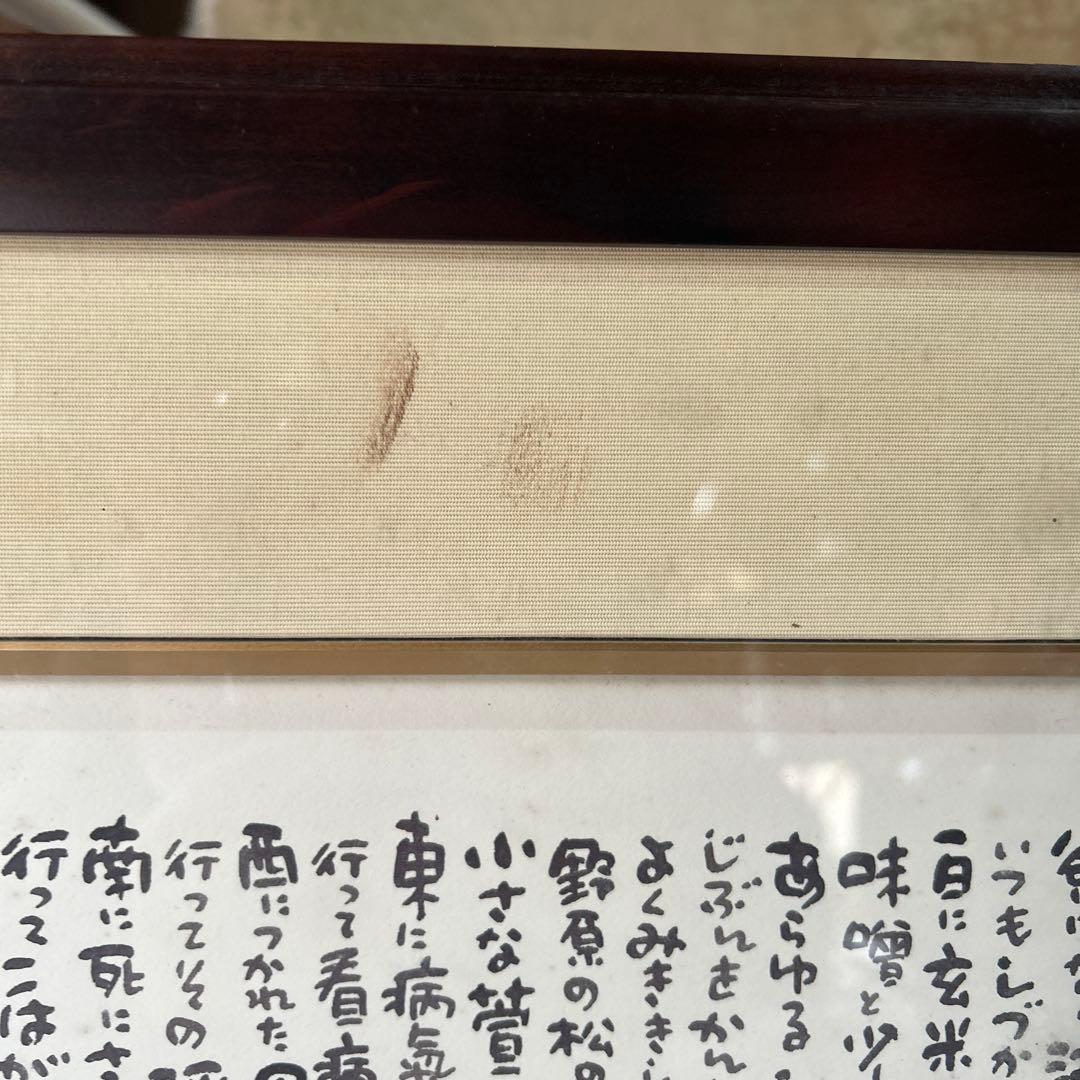 いつもしづか
一日に玄米
味噌と少し
あらゆる
じぶんをかん
よくみきき
野原の松の
小さな萱
東に病氣
行って看病
西につかれた
行ってその
南に死にさ
行ってこはが